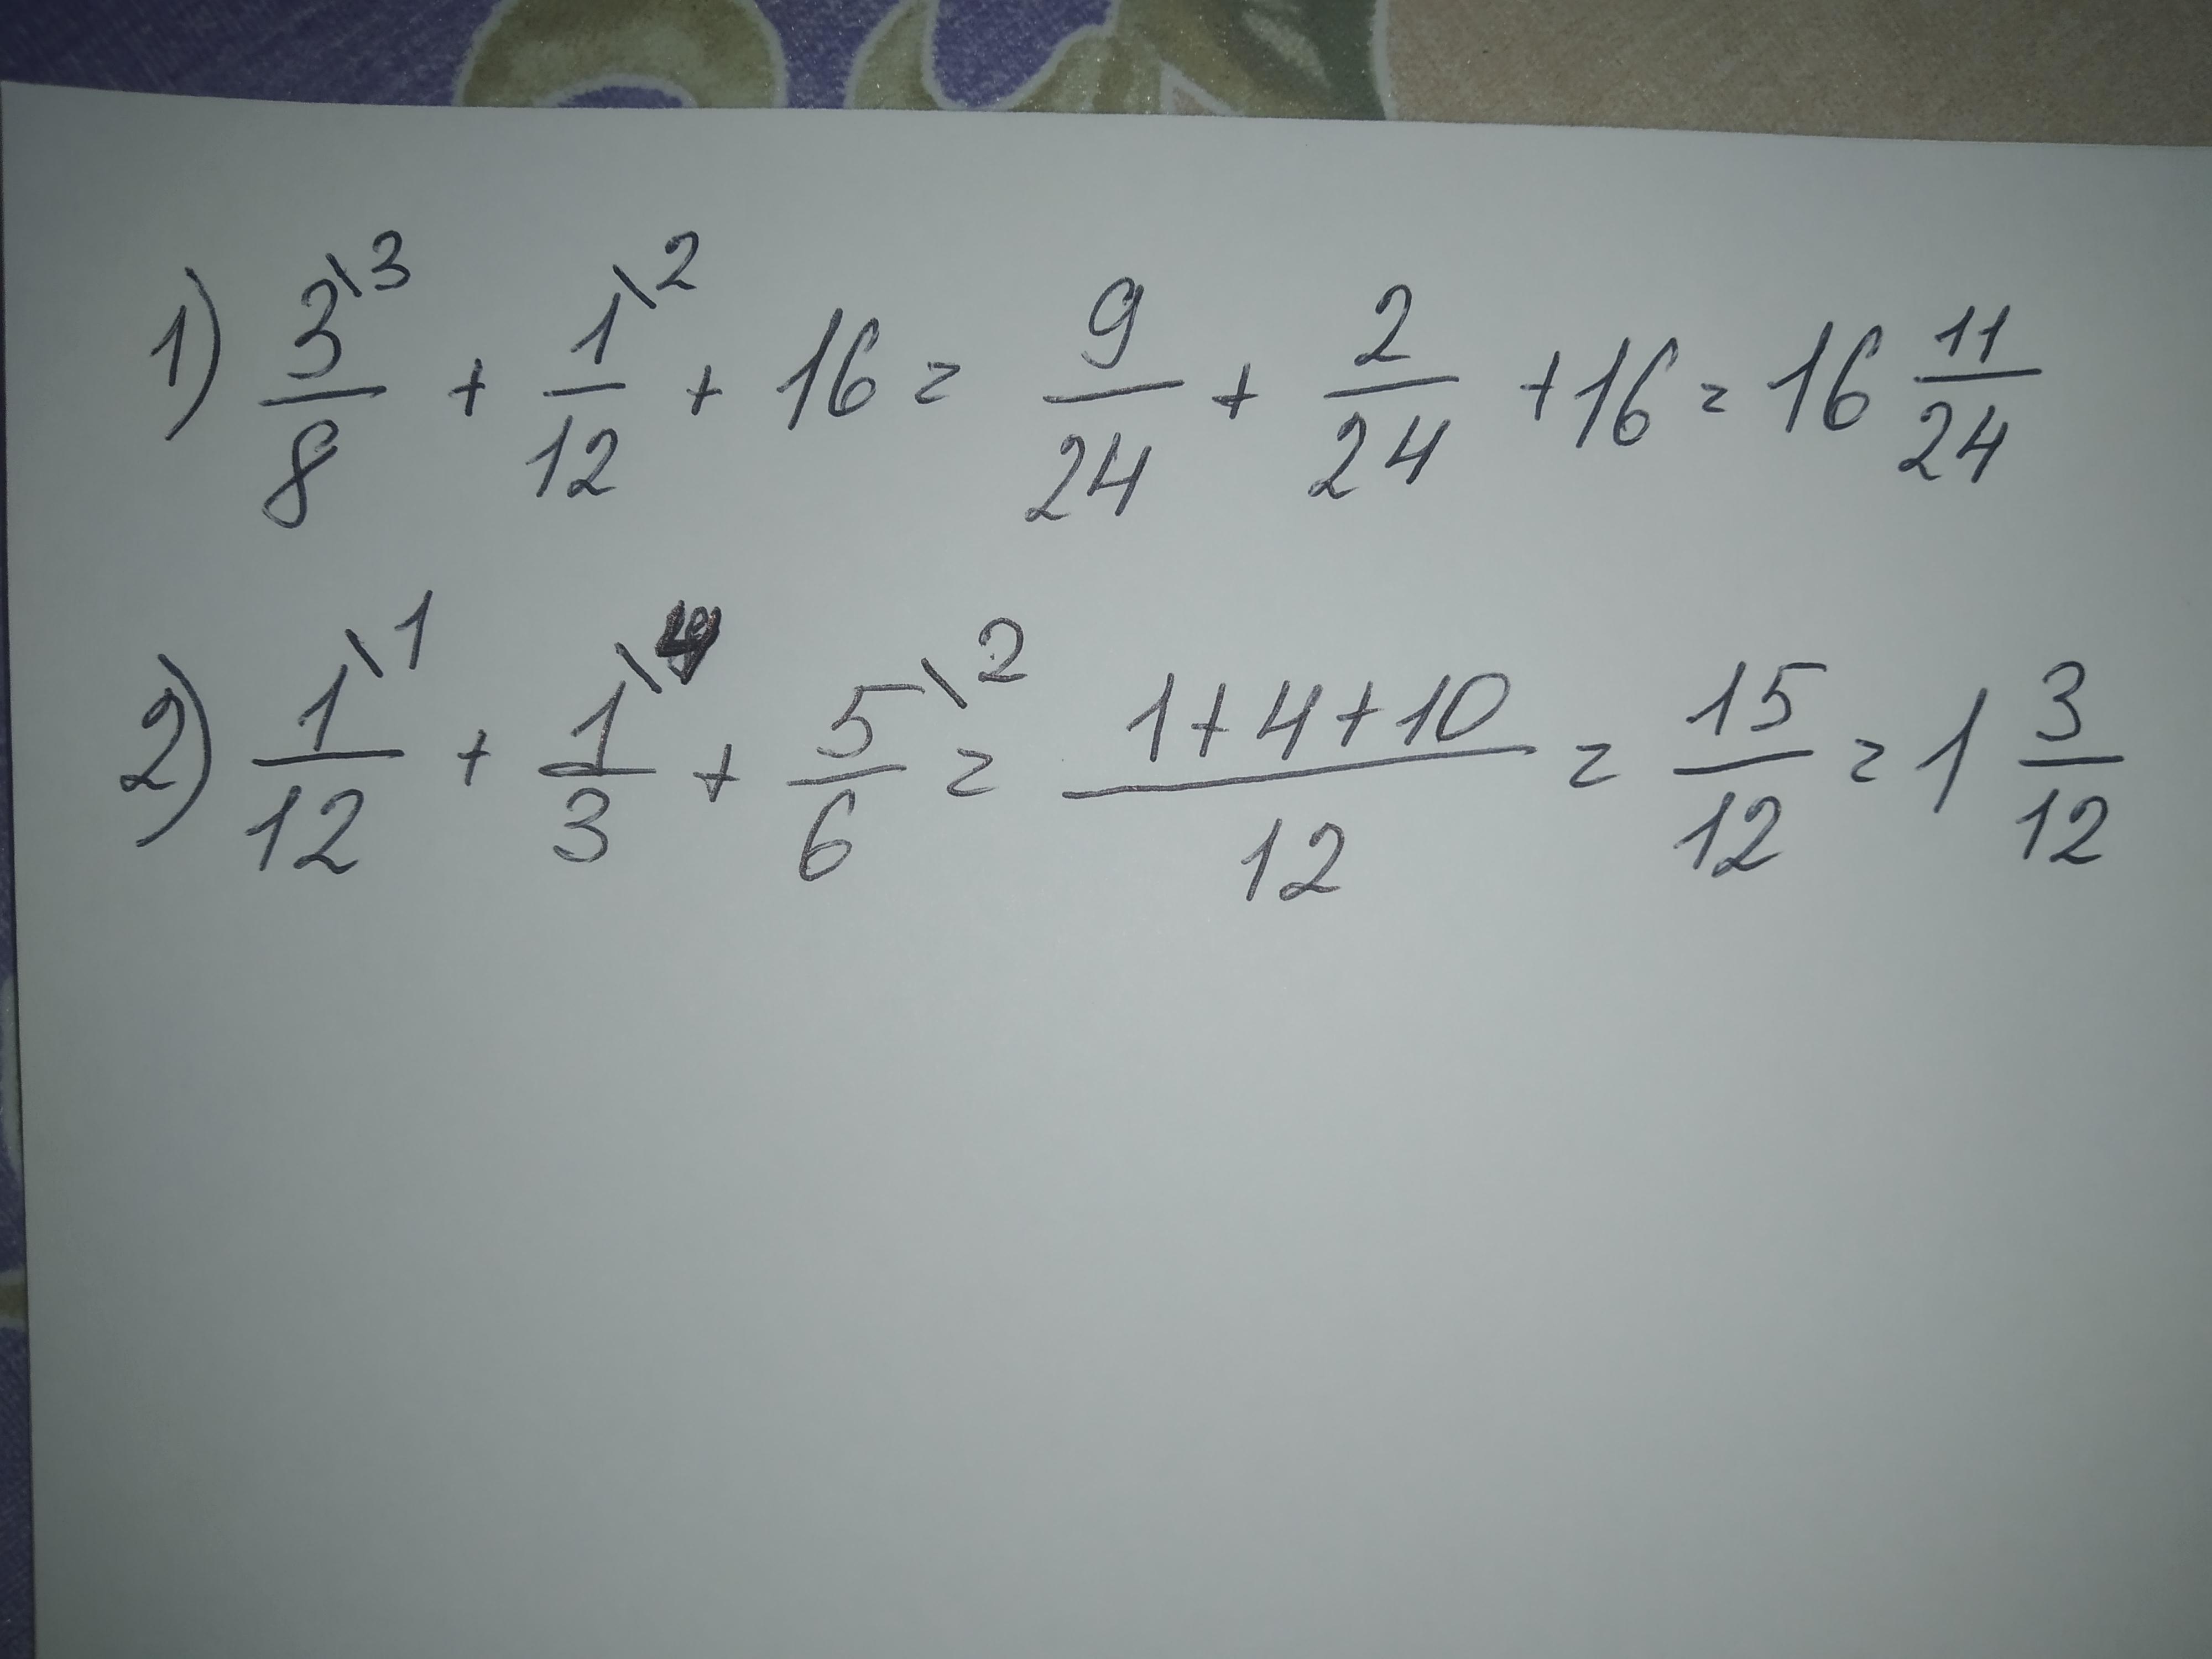 1) 3\3/8 + 1\2/12 + 16 = 9/24 + 2/24 + 16 = 16 11/24
2) 1\1/12 + 1\4/3 + 5\2/6 = (1+4+10)/12 = 15/12 = 1 3/12